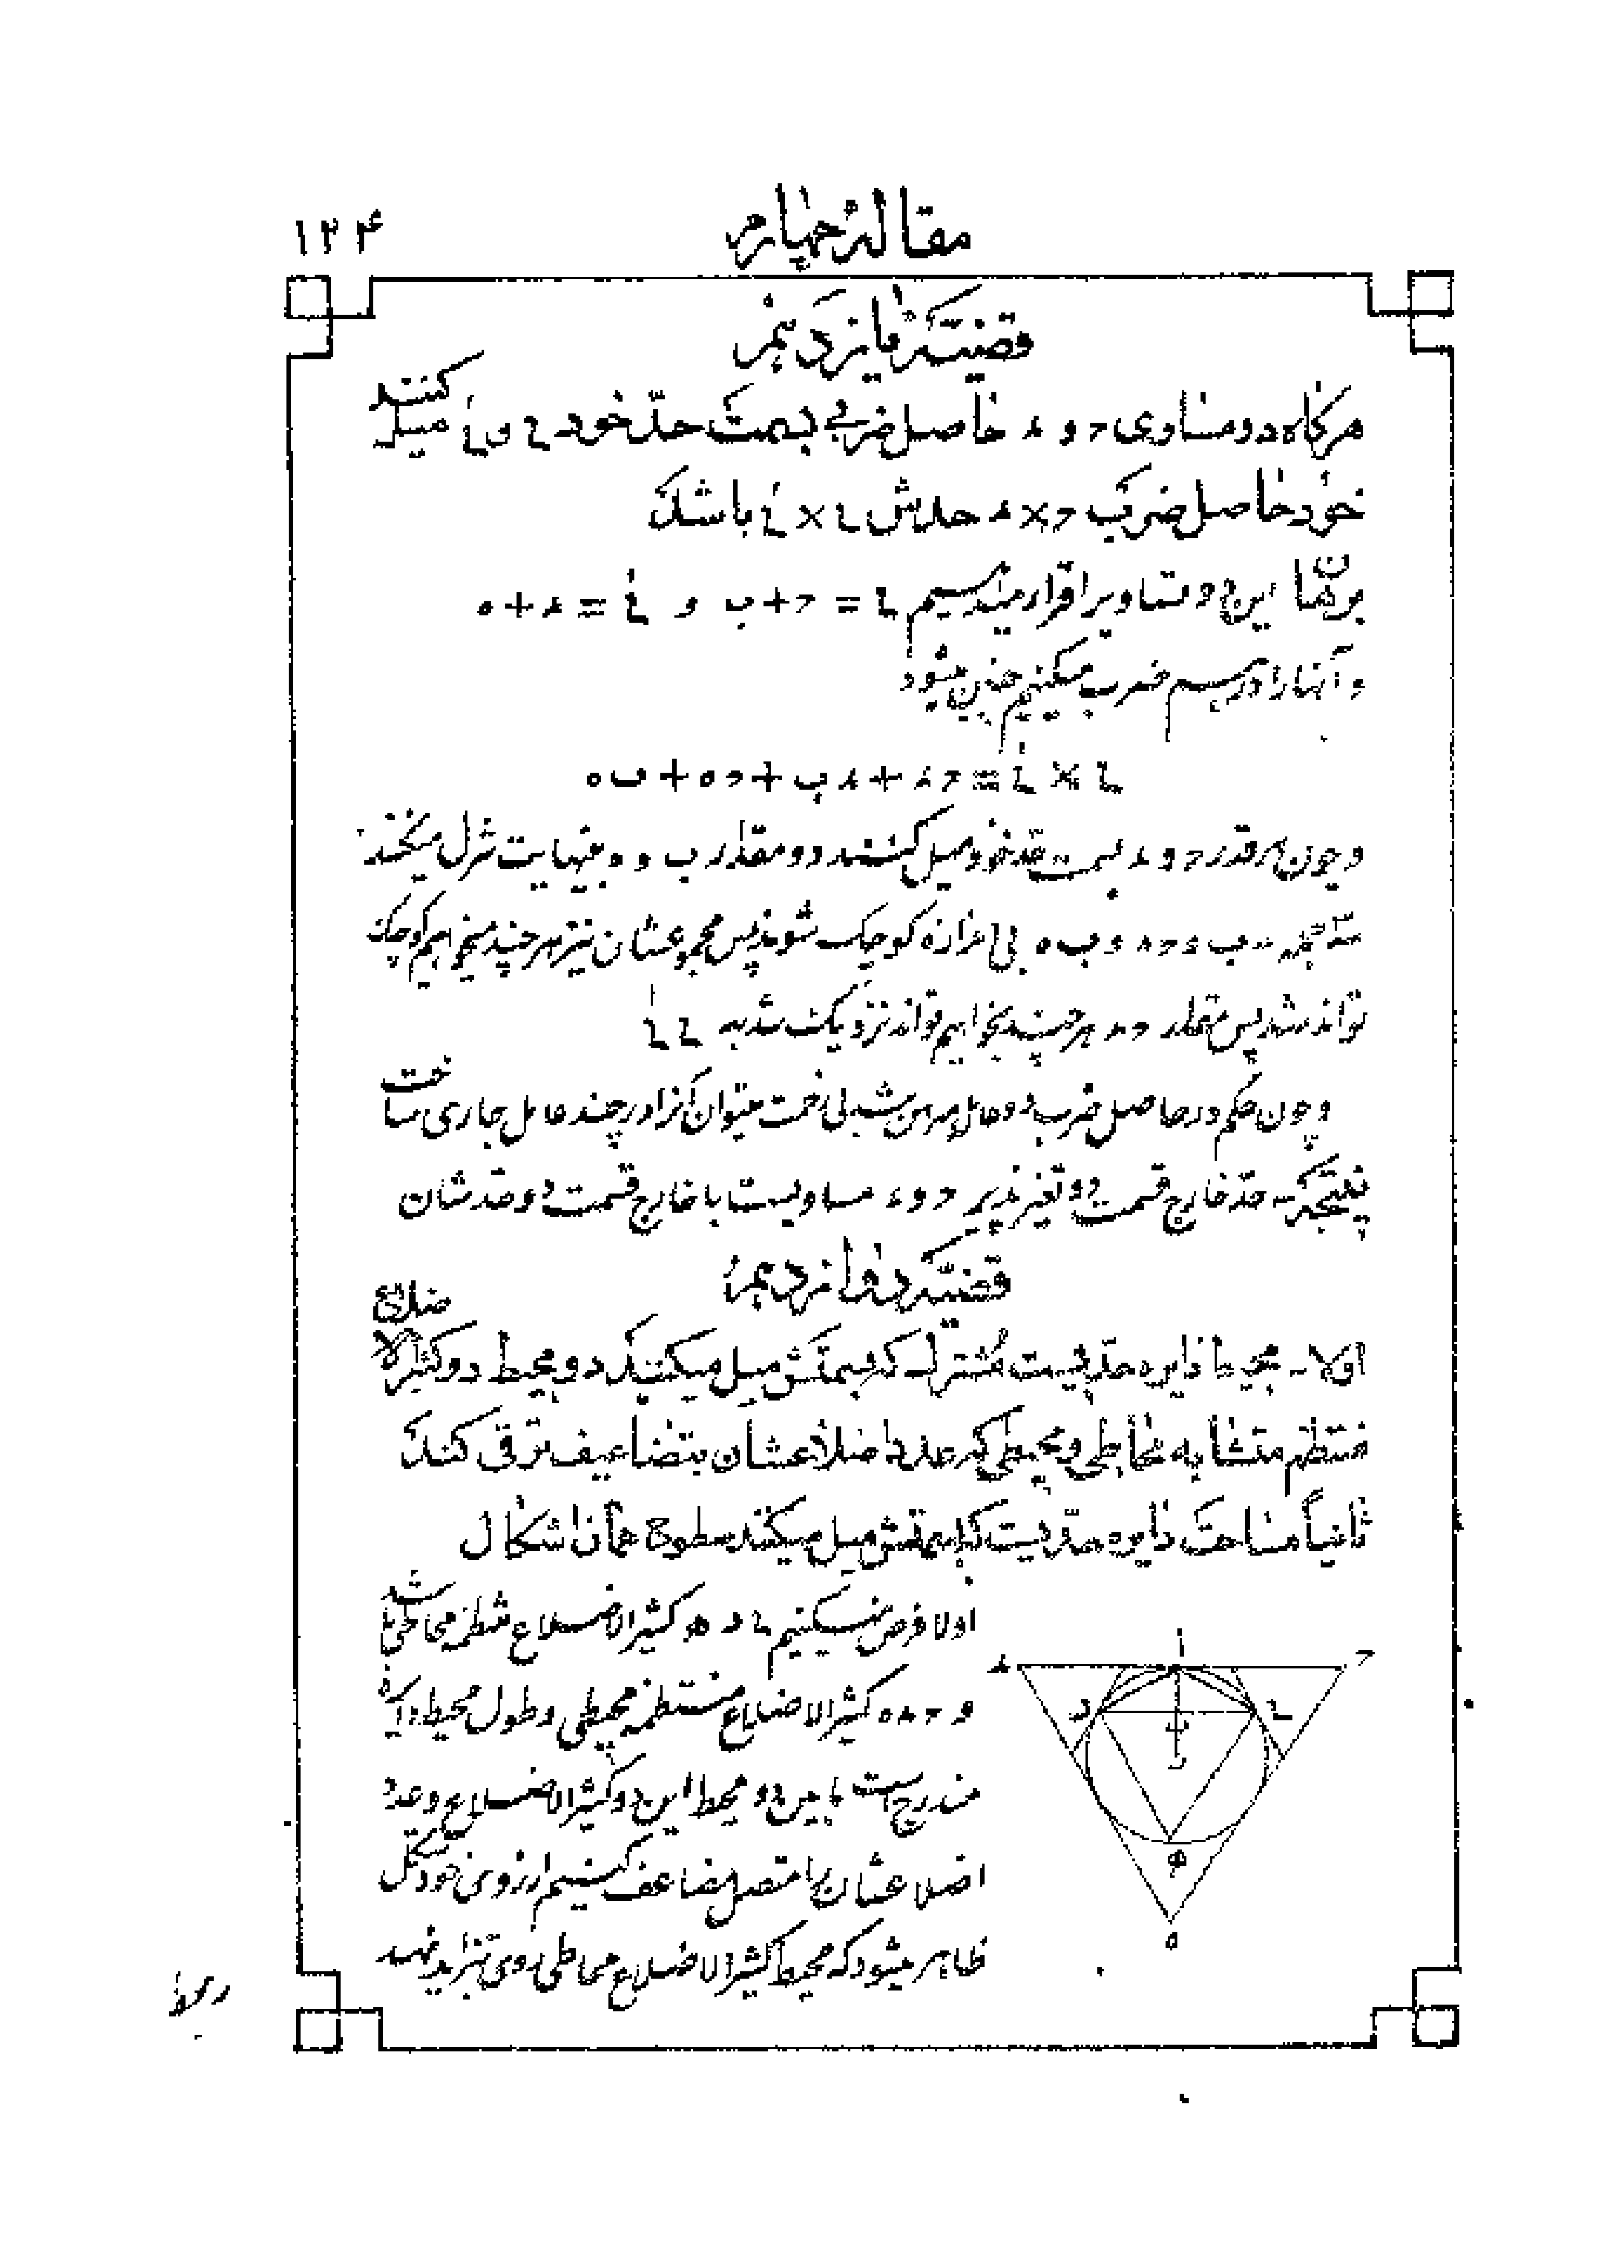 مقالهٔ چهارم
۱۲۴
قضیهٔ یازدهم
هرگاه دو متساوی حـ و ء حاصل ضربی بسمت حدّ خود ے و ے میل کنند
خود حاصل ضرب حـ × ء حدش ے × ے باشد
برهان این دو تساوی را قرار میدهیم ے = حـ + ب و ے = ء + ه
و آنها را در هم ضرب میکنیم چنین میشود
ے × ے = حـ ء + ء ب + حـ ه + ب ه
و چون هر قدر حـ و ء بسمت حدّ خود میل کنند دو مقدار ب و ه بینهایت تنزل میکنند
سه جمله ء ب و حـ ه و ب ه بی اندازه کوچک شوند پس مجموعشان نیز هر چند میخواهیم کوچک
تواند شد پس مقدار حـ ء هر چند بخواهیم تواند نزدیک شد به ے ے
و چون حکم در حاصل ضرب دو عامل مبرهن شد لی میتوان آنرا در چند عامل جاری ساخت
نتیجه که حدّ خارج قسمت دو تغییر پذیر حـ و ء مساویست با خارج قسمت دو حدشان
قضیهٔ دوازدهم
اولا ـ محیط دایره حدّیست مشترک که بسمتش میل میکنند دو محیط دو کثیرالاضلاع
منتظم متشابه محاطی و محیطی که عدد اضلاعشان بتضاعیف ترقی کند
ثانیاً مساحت دایره حدّیست که بسمتش میل میکنند سطوح همان اشکال
اولا فرض میکنیم ے د ه کثیرالاضلاع منتظمه محاطی باشد
و حـ ء ه کثیرالاضلاع منتظمه محیطی و طول محیط دایره
مندرج است ما بین دو محیط این دو کثیرالاضلاع و عدد
اضلاعشان را متصل مضاعف کنیم از روی خود شکل
ظاهر میشود که محیط کثیرالاضلاع محاطی روی بتزاید نهد
ا
حـ
ء
د
ے
ب
ه
ه